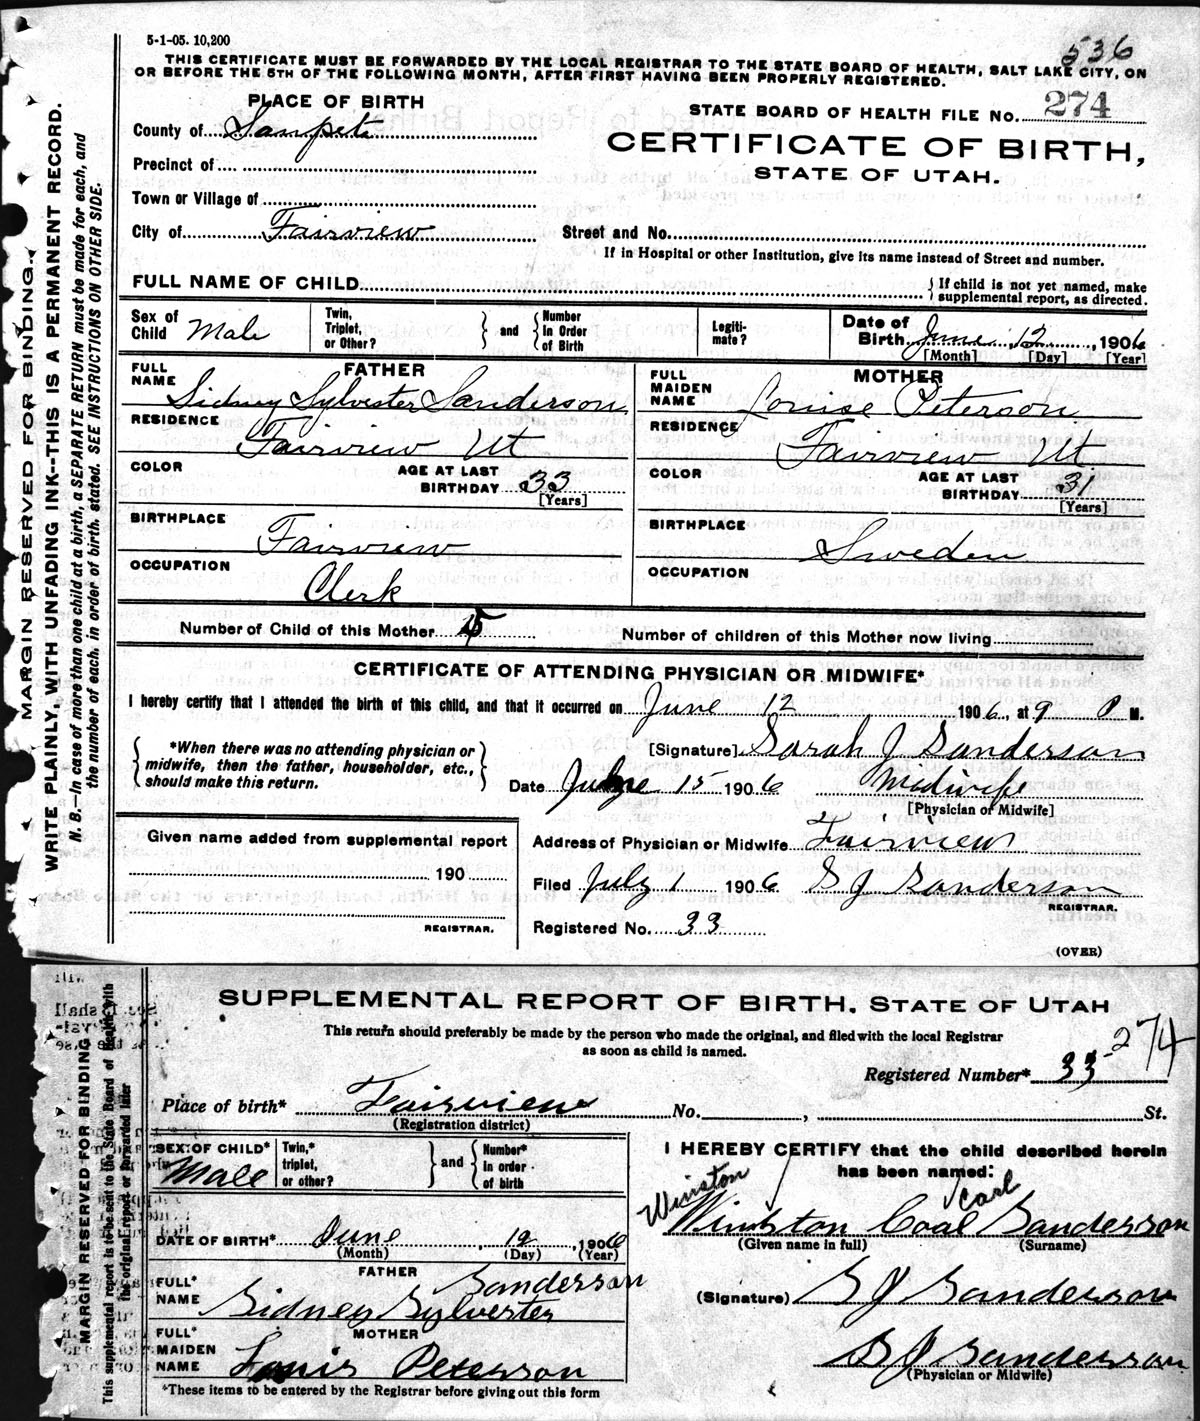 5-1-05. 10,200
536
THIS CERTIFICATE MUST BE FORWARDED BY THE LOCAL REGISTRAR TO THE STATE BOARD OF HEALTH, SALT LAKE CITY, ON
OR BEFORE THE 5TH OF THE FOLLOWING MONTH, AFTER FIRST HAVING BEEN PROPERLY REGISTERED.
MARGIN RESERVED FOR BINDING.
WRITE PLAINLY, WITH UNFADING INK--THIS IS A PERMANENT RECORD.
N. B.—In case of more than one child at a birth, a SEPARATE RETURN must be made for each, and
the number of each, in order of birth, stated. SEE INSTRUCTIONS ON OTHER SIDE.
PLACE OF BIRTH
STATE BOARD OF HEALTH FILE NO. 274
County of Sanpete
CERTIFICATE OF BIRTH,
STATE OF UTAH.
Precinct of
Town or Village of
City of Fairview Street and No.
If in Hospital or other Institution, give its name instead of Street and number.
FULL NAME OF CHILD
If child is not yet named, make
supplemental report, as directed.
Sex of
Child Male
Twin,
Triplet,
or Other?
and
Number
in Order
of Birth
Legiti-
mate?
Date of
Birth June 12 1906
[Month] [Day] [Year]
FATHER
FULL
NAME Sidney Sylvester Sanderson
RESIDENCE
Fairview Ut
COLOR
AGE AT LAST
BIRTHDAY 33
[Years]
BIRTHPLACE
Fairview
OCCUPATION
Clerk
MOTHER
FULL
MAIDEN
NAME Louise Peterson
RESIDENCE
Fairview Ut
COLOR
AGE AT LAST
BIRTHDAY 31
[Years]
BIRTHPLACE
Sweden
OCCUPATION
Number of Child of this Mother 5 Number of children of this Mother now living
CERTIFICATE OF ATTENDING PHYSICIAN OR MIDWIFE*
I hereby certify that I attended the birth of this child, and that it occurred on June 12 1906, at 9 P M.
*When there was no attending physician or
midwife, then the father, householder, etc.,
should make this return.
[Signature] Sarah J Sanderson
Date June 15 1906 Midwife
[Physician or Midwife]
Given name added from supplemental report
190
REGISTRAR.
Address of Physician or Midwife Fairview
Filed July 1 1906 S J Sanderson
REGISTRAR.
Registered No. 33
(OVER)
MARGIN RESERVED FOR BINDING
This supplemental report is to be sent to the State Board of Health with
the original report or forwarded later
SUPPLEMENTAL REPORT OF BIRTH, STATE OF UTAH
This return should preferably be made by the person who made the original, and filed with the local Registrar
as soon as child is named.
Registered Number* 33-274
Place of birth* Fairview No. , St.
(Registration district)
SEX OF CHILD*
Male
Twin,*
triplet,
or other?
and
Number*
in order
of birth
DATE OF BIRTH* June , 12 , 1906
(Month) (Day) (Year)
FATHER
FULL*
NAME Sidney Sylvester Sanderson
MOTHER
FULL*
MAIDEN
NAME Louis Peterson
*These items to be entered by the Registrar before giving out this form
I HEREBY CERTIFY that the child described herein
has been named:
Winston Carl
Winston Coal Sanderson
(Given name in full) (Surname)
(Signature) S J Sanderson
S J Sanderson
(Physician or Midwife)